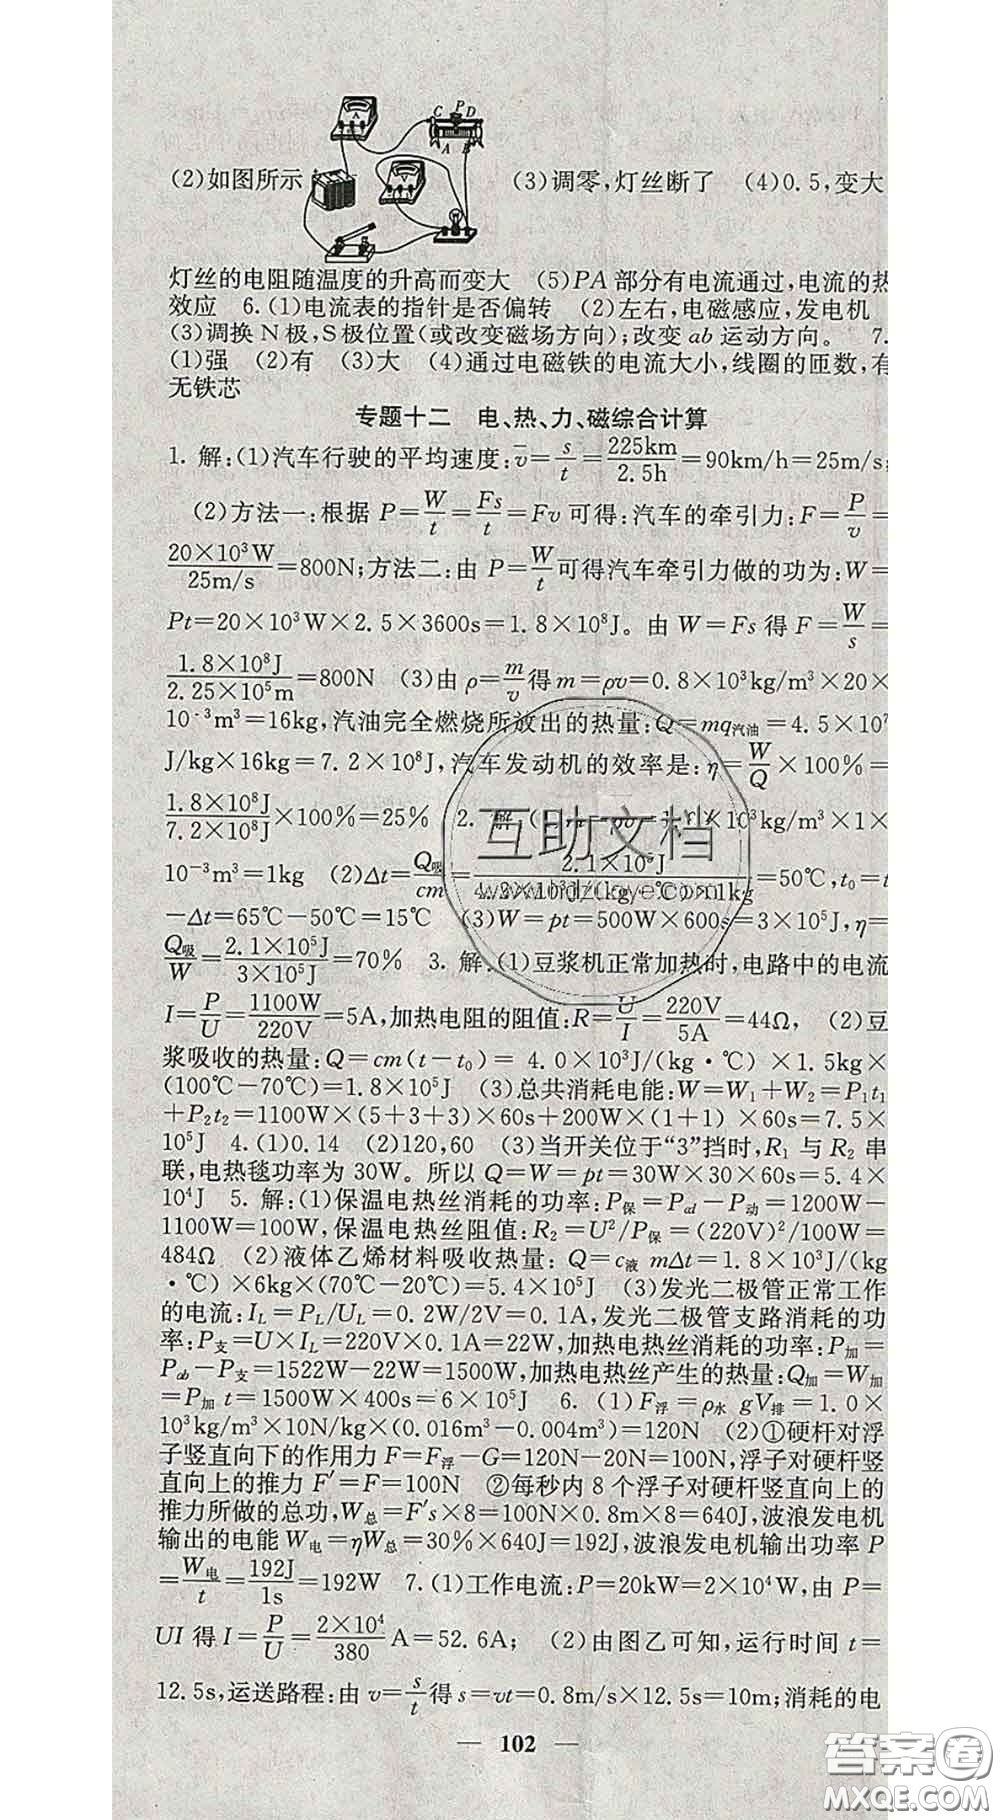 A
C P D
A B
V
(2)如图所示 (3)调零,灯丝断了 (4)0.5,变大
灯丝的电阻随温度的升高而变大 (5)PA部分有电流通过,电流的热
效应 6.(1)电流表的指针是否偏转 (2)左右,电磁感应,发电机
(3)调换N极,S极位置(或改变磁场方向);改变ab运动方向。 7.
(1)强 (2)有 (3)大 (4)通过电磁铁的电流大小,线圈的匝数,有
无铁芯
专题十二 电、热、力、磁综合计算
1. 解:(1)汽车行驶的平均速度:v̄=s/t=225km/2.5h=90km/h=25m/s;
(2)方法一:根据 P=W/t=Fs/t=Fv可得:汽车的牵引力:F=P/v=
20×10³W/25m/s=800N;方法二:由 P=W/t可得汽车牵引力做的功为:W=
Pt=20×10³W×2.5×3600s=1.8×10⁸J。由 W=Fs 得 F=W/s=
1.8×10⁸J/2.25×10⁵m=800N (3)由 ρ=m/v得 m=ρv=0.8×10³kg/m³×20×
10⁻³m³=16kg,汽油完全燃烧所放出的热量:Q=mq汽油=4.5×10⁷
J/kg×16kg=7.2×10⁸J,汽车发动机的效率是:η=W/Q×100%=
1.8×10⁸J/7.2×10⁸J×100%=25% 2. 解 ×10³kg/m³×1×
10⁻³m³=1kg (2)Δt=Q吸/cm=2.1×10⁵J/4.2×10³J/(kg·℃)×1kg=50℃,t₀=t
-Δt=65℃-50℃=15℃ (3)W=pt=500W×600s=3×10⁵J,η=
Q吸/W=2.1×10⁵J/3×10⁵J=70% 3. 解:(1)豆浆机正常加热时,电路中的电流
I=P/U=1100W/220V=5A,加热电阻的阻值:R=U/I=220V/5A=44Ω, (2)豆
浆吸收的热量:Q=cm(t-t₀)= 4.0×10³J/(kg·℃)×1.5kg×
(100℃-70℃)=1.8×10⁵J (3)总共消耗电能:W=W₁+W₂=P₁t₁
+P₂t₂=1100W×(5+3+3)×60s+200W×(1+1)×60s=7.5×
10⁵J 4.(1)0.14 (2)120,60 (3)当开关位于“3”挡时,R₁与R₂串
联,电热毯功率为 30W。所以 Q=W=pt=30W×30×60s=5.4×
10⁴J 5. 解:(1)保温电热丝消耗的功率:P保=Pcd-P动=1200W-
1100W=100W,保温电热丝阻值:R₂=U²/P保=(220V)²/100W=
484Ω (2)液体乙烯材料吸收热量:Q=c液 mΔt=1.8×10³J/(kg
·℃)×6kg×(70℃-20℃)=5.4×10⁵J (3)发光二极管正常工作
的电流:I_L=P_L/U_L=0.2W/2V=0.1A,发光二极管支路消耗的功
率:P支=U×I_L=220V×0.1A=22W,加热电热丝消耗的功率:P加=
Pab-P支=1522W-22W=1500W,加热电热丝产生的热量:Q加=W加
=P加 t=1500W×400s=6×10⁵J 6. (1)F浮=ρ水 gV排=1.0×
10³kg/m³×10N/kg×(0.016m³-0.004m³)=120N (2)①硬杆对浮
子竖直向下的作用力 F=F浮-G=120N-20N=100N,浮子对硬杆竖
直向上的推力 F′=F=100N ②每秒内 8 个浮子对硬杆竖直向上的
推力所做的总功,W总=F′s×8=100N×0.8m×8=640J,波浪发电机
输出的电能 W电=ηW总=30%×640J=192J,波浪发电机输出功率 P
=W电/t=192J/1s=192W 7.(1)工作电流:P=20kW=2×10⁴W,由 P=
UI 得 I=P/U=2×10⁴/380 A=52.6A; (2)由图乙可知,运行时间 t=
12.5s,运送路程:由 v=s/t得 s=vt=0.8m/s×12.5s=10m;消耗的电
— 102 —
互助文档
答案圈
MXQE.COM